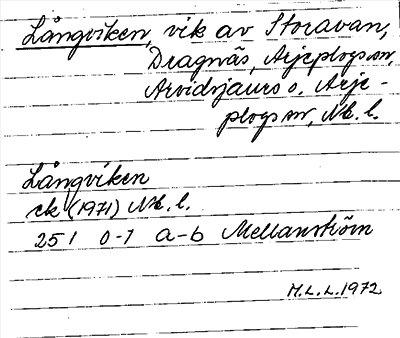 Långviken, vik av Storavan,
Dragnäs, Arjeplogs sn
Arvidsjaurs o. Arje-
plogs sn, Nb. l.
Långviken
ek (1971) Nb. l.
25 I 0-1 a-b Mellanström
M.L.L. 1972